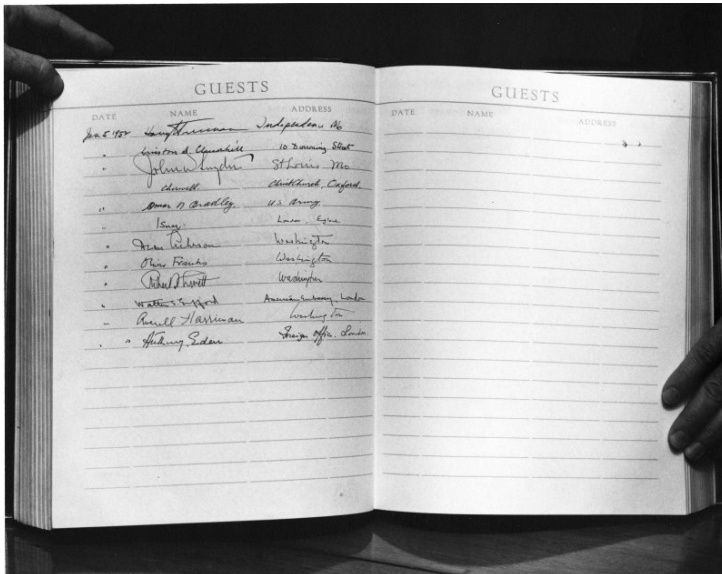 GUESTS
DATE NAME ADDRESS
Jan 5 1952 Harry Truman Independence Mo
" Winston S. Churchill 10 Downing Street
" John W Snyder St Louis Mo
Cherwell Christchurch, Oxford
" Omar N Bradley. US Army
" Ismay London, England
" Dean Acheson Washington
" Oliver Franks Washington
" Robert A Lovett Washington
" Walter S Gifford American Embassy, London
" Averell Harriman Washington
" " Anthony Eden Foreign Office. London.
GUESTS
DATE NAME ADDRESS